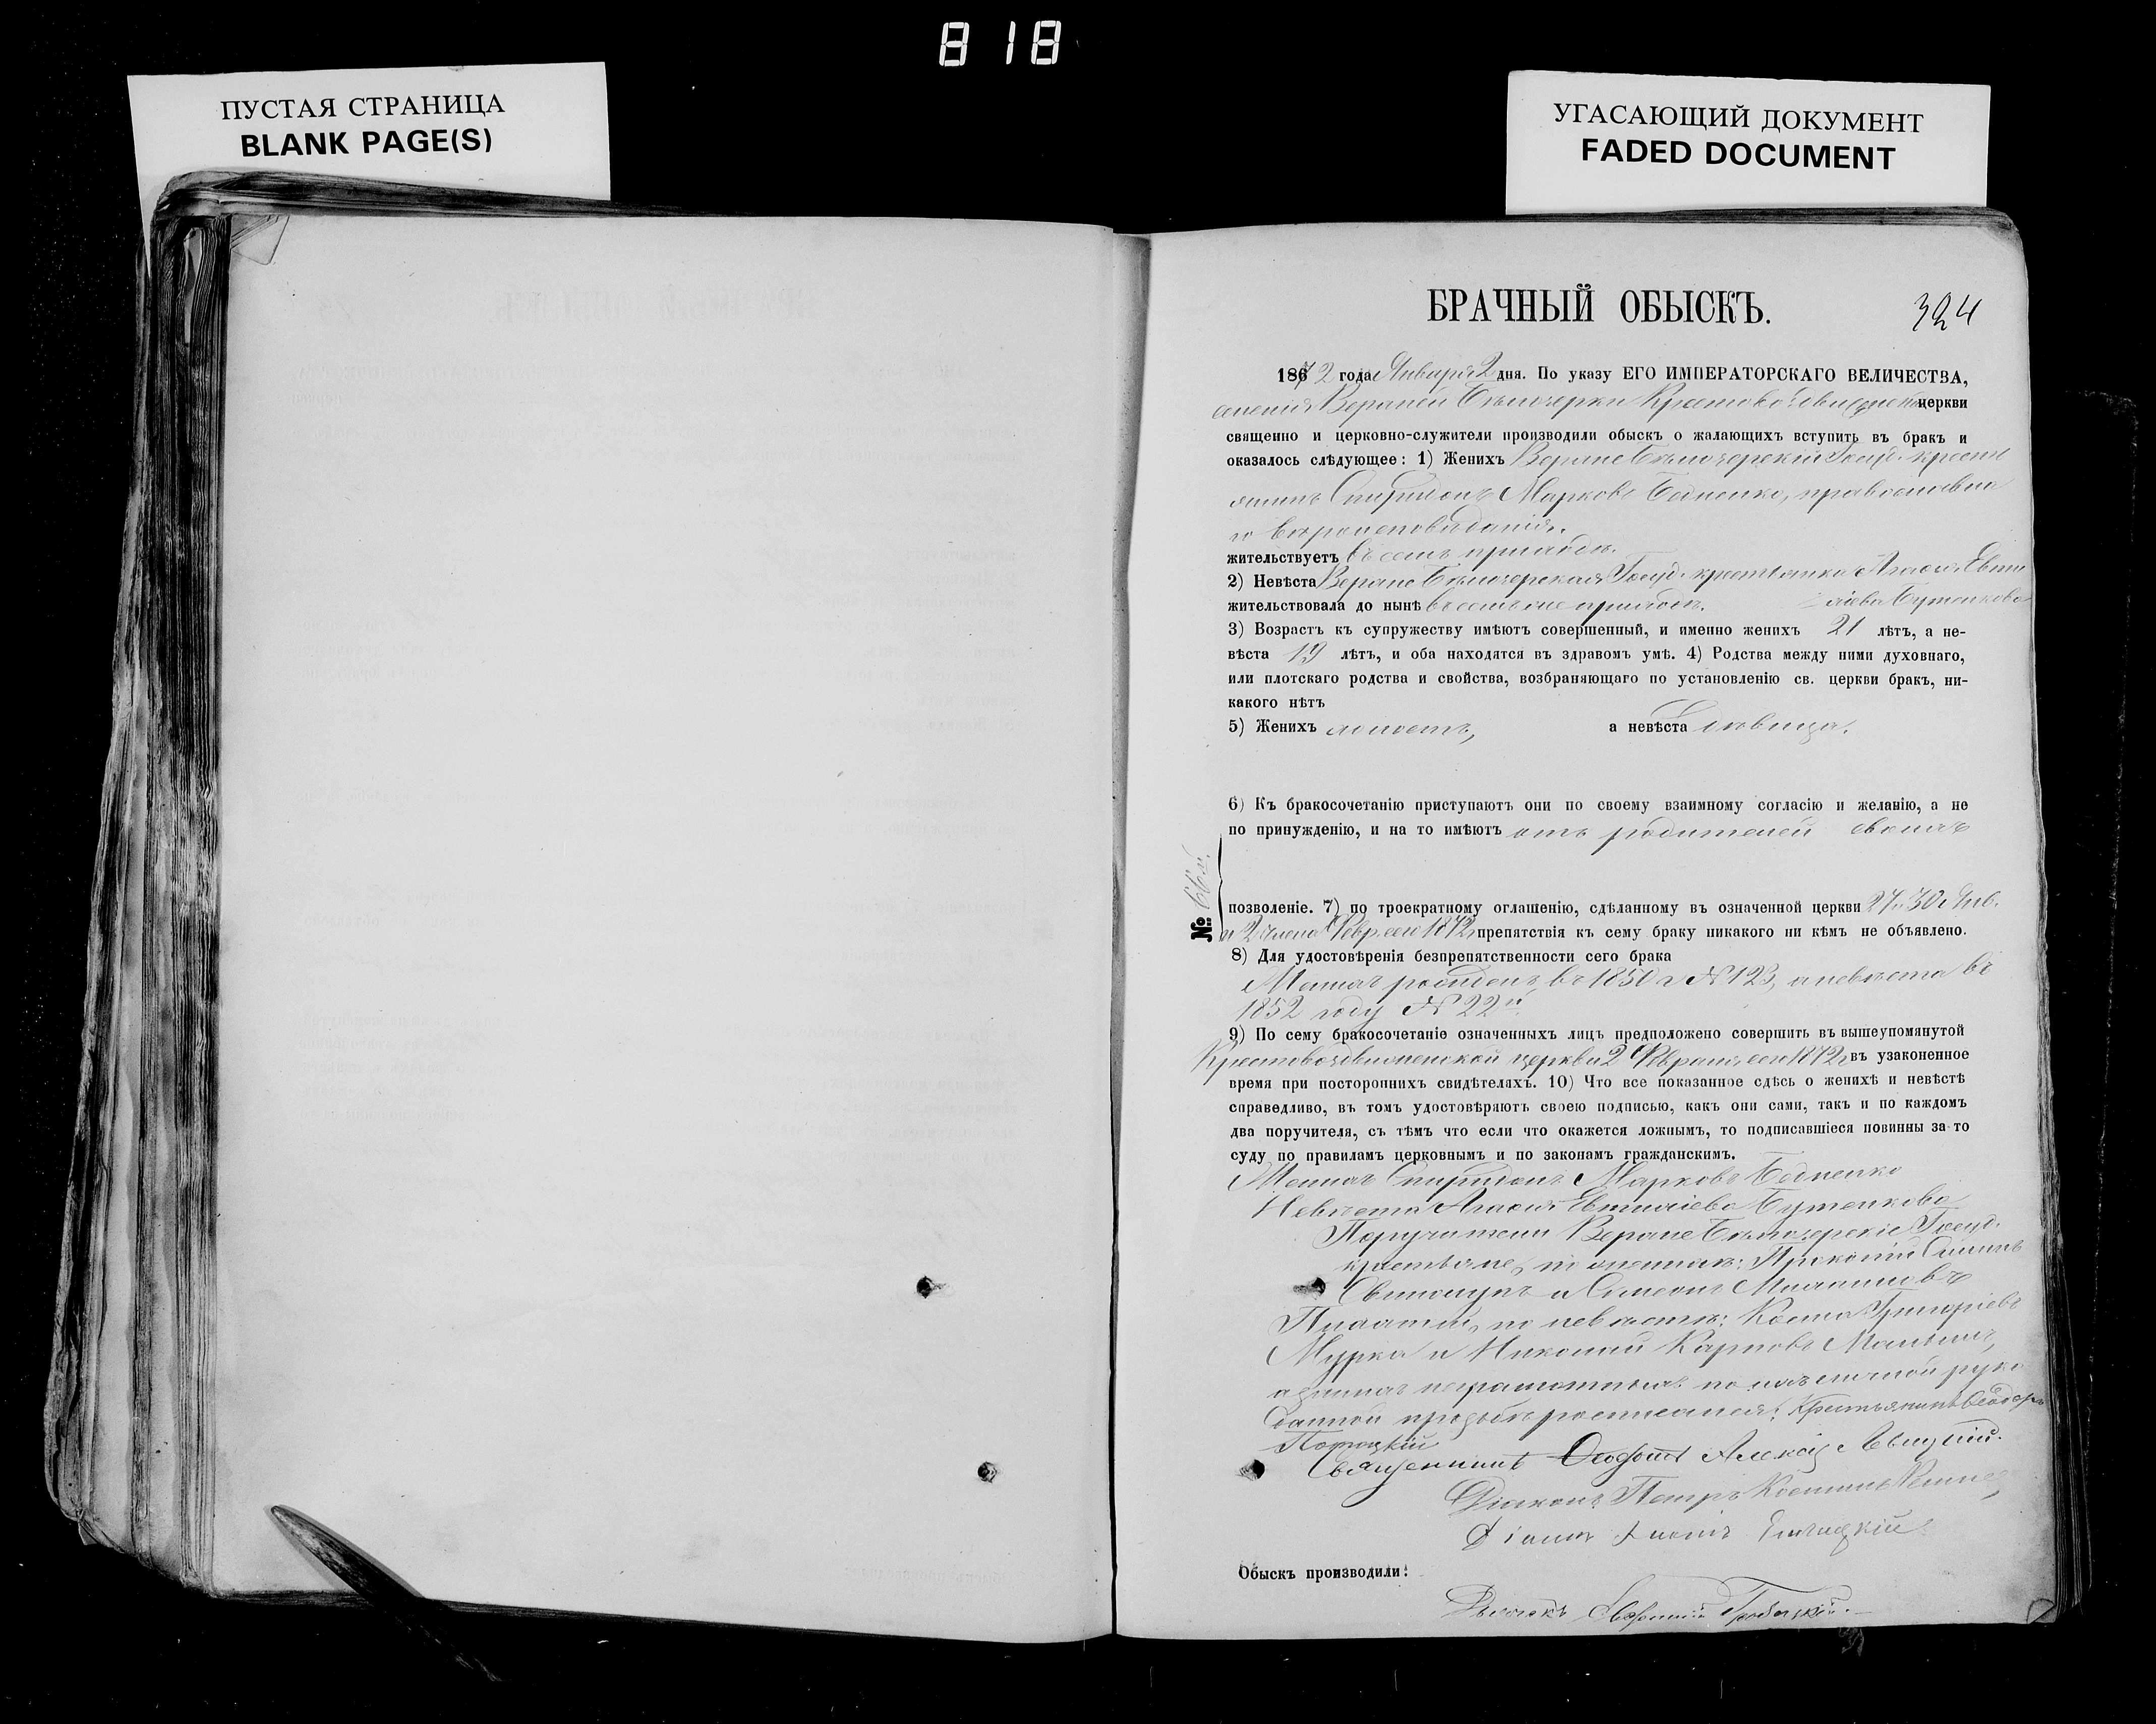 818
ПУСТАЯ СТРАНИЦА
BLANK PAGE(S)
УГАСАЮЩИЙ ДОКУМЕНТ
FADED DOCUMENT
БРАЧНЫЙ ОБЫСКЪ.
324
1872 года Января 2 дня. По указу ЕГО ИМПЕРАТОРСКАГО ВЕЛИЧЕСТВА,
селенія Верхней Бѣлозерки Крестовоздвиженской церкви
священно и церковно-служители производили обыскъ о жалающихъ вступить въ бракъ и
оказалось слѣдующее: 1) Женихъ Верхнебѣлозерскій Госуд. кресть
янинъ Спиридонъ Марковъ Бедненко, православна
го вѣроисповѣданія.
жительствуетъ въ семъ приходѣ.
2) Невѣста Верхнебѣлозерская Госуд. крестьянка Агафія Евти
хіева Бутенкова
жительствовала до нынѣ въ семъ же приходѣ.
3) Возрастъ къ супружеству имѣютъ совершенный, и именно женихъ 21 лѣтъ, а не-
вѣста 19 лѣтъ, и оба находятся въ здравомъ умѣ. 4) Родства между ними духовнаго,
или плотскаго родства и свойства, возбраняющаго по установленію св. церкви бракъ, ни-
какого нѣтъ
5) Женихъ холостъ, а невѣста дѣвица.
6) Къ бракосочетанію приступаютъ они по своему взаимному согласію и желанію, а не
по принужденію, и на то имѣютъ отъ родителей своихъ
№ 66й.
позволеніе. 7) по троекратному оглашенію, сдѣланному въ означенной церкви 27 и 30 Янв.
и 2 числа Февр. сего 1872 г препятствія къ сему браку никакого ни кѣмъ не объявлено.
8) Для удостовѣренія безпрепятственности сего брака
Женихъ рожденъ въ 1850 г № 123, а невѣста въ
1852 году № 22й.
9) По сему бракосочетаніе означенныхъ лицъ предположено совершить въ вышеупомянутой
Крестовоздвиженской церкви 2 Февраля сего 1872 г въ узаконенное
время при постороннихъ свидѣтеляхъ. 10) Что все показанное сдѣсь о женихѣ и невѣстѣ
справедливо, въ томъ удостовѣряютъ своею подписью, какъ они сами, такъ и по каждомъ
два поручителя, съ тѣмъ что если что окажется ложнымъ, то подписавшіеся повинны за то
суду по правиламъ церковнымъ и по законамъ гражданскимъ.
Женихъ Спиридонъ Марковъ Бедненко
Невѣста Агафія Евтихіева Бутенкова
Поручители Верхнебѣлозерскіе Госуд.
крестьяне, по женихѣ: Прокопій
и Симеонъ
по невѣстѣ: Косма Григоріевъ
Мурка и Николай Карповъ
а за нихъ неграмотныхъ по ихъ личной руко
данной прозьбѣ росписался: Крестьянинъ Ѳеодоръ
Потоцкій
Священникъ Алексій Левицкій.
Діаконъ Петръ
Обыскъ производили: